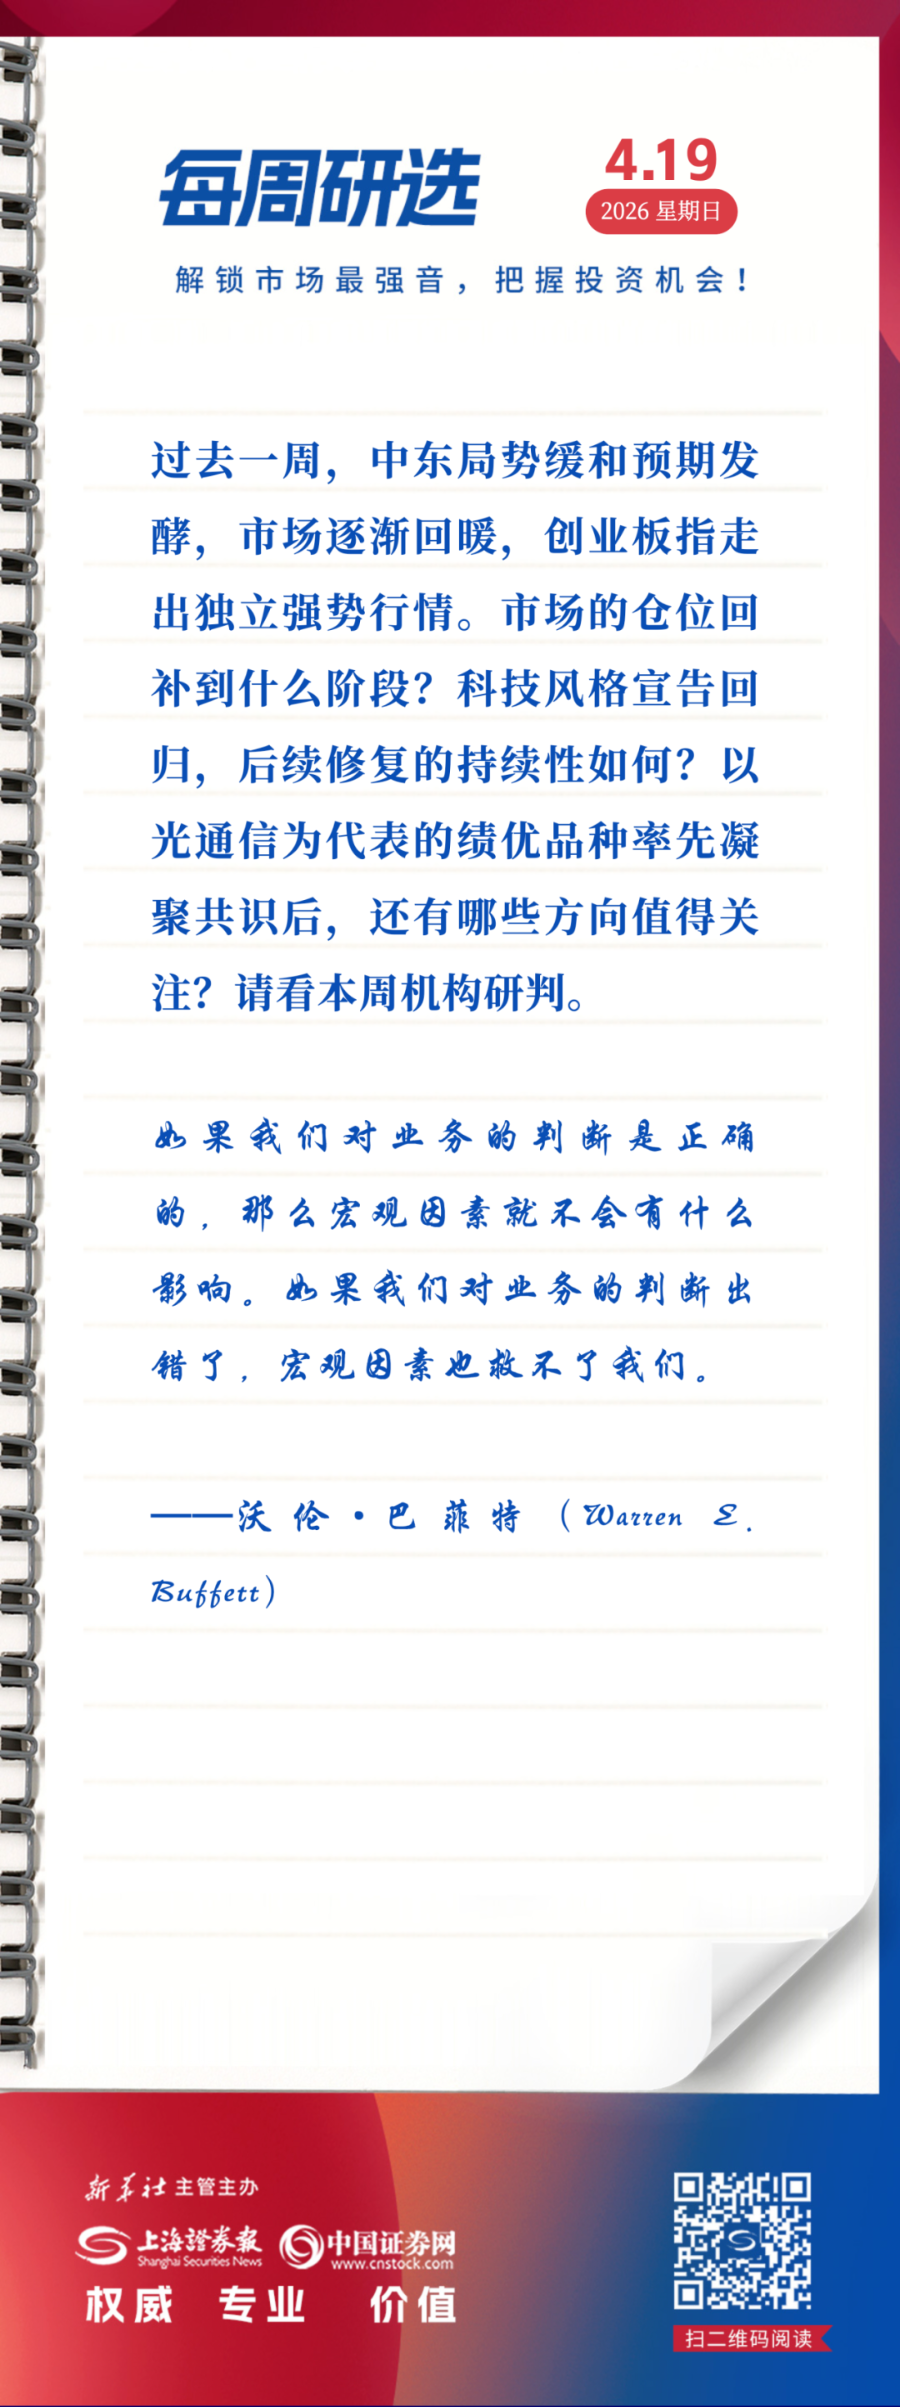 每周研选
4.19
2026 星期日
解锁市场最强音，把握投资机会！
过去一周，中东局势缓和预期发
酵，市场逐渐回暖，创业板指走
出独立强势行情。市场的仓位回
补到什么阶段？科技风格宣告回
归，后续修复的持续性如何？以
光通信为代表的绩优品种率先凝
聚共识后，还有哪些方向值得关
注？请看本周机构研判。
如果我们对业务的判断是正确
的，那么宏观因素就不会有什么
影响。如果我们对业务的判断出
错了，宏观因素也救不了我们。
——沃伦·巴菲特（Warren E.
Buffett）
新华社 主管主办
上海證券報
Shanghai Securities News
中国证券网
www.cnstock.com
权威 专业 价值
扫二维码阅读